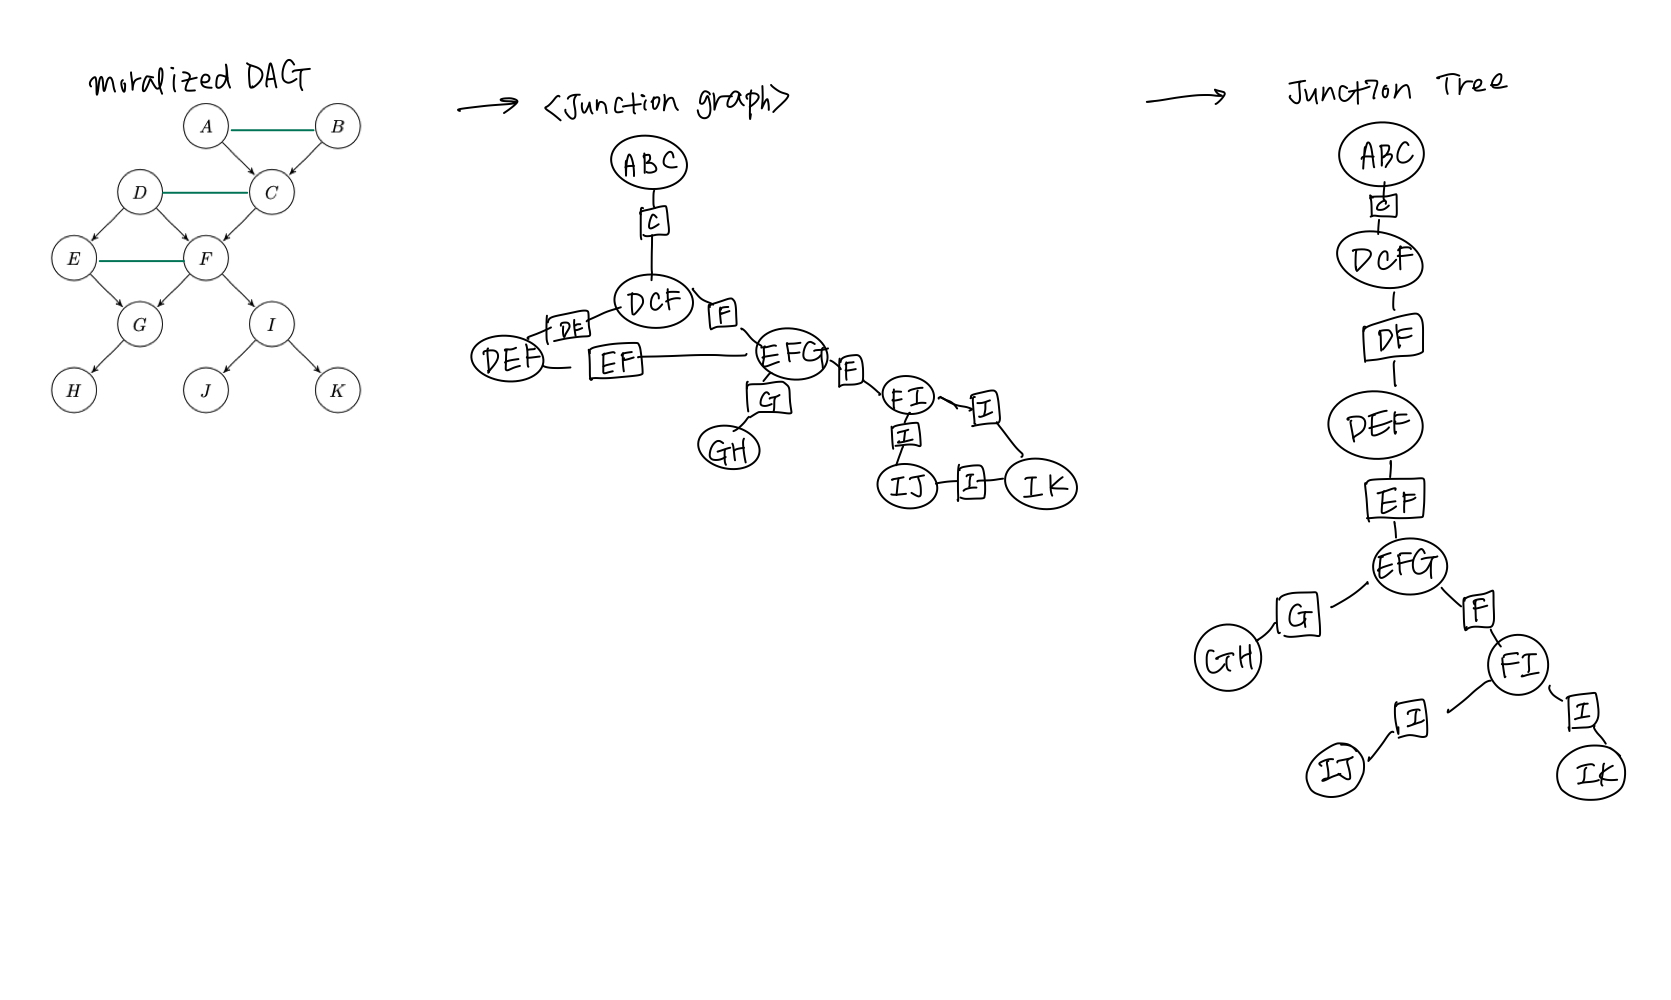 moralized DAG
A B
D C
E F
G I
H J K
<Junction graph>
ABC
C
DCF
DF
F
DEF
EF
EFG
F
G
GH
FI
I
I
IJ
I
IK
Junction Tree
ABC
C
DCF
DF
DEF
EF
EFG
G
F
GH
FI
I
I
IJ
IK